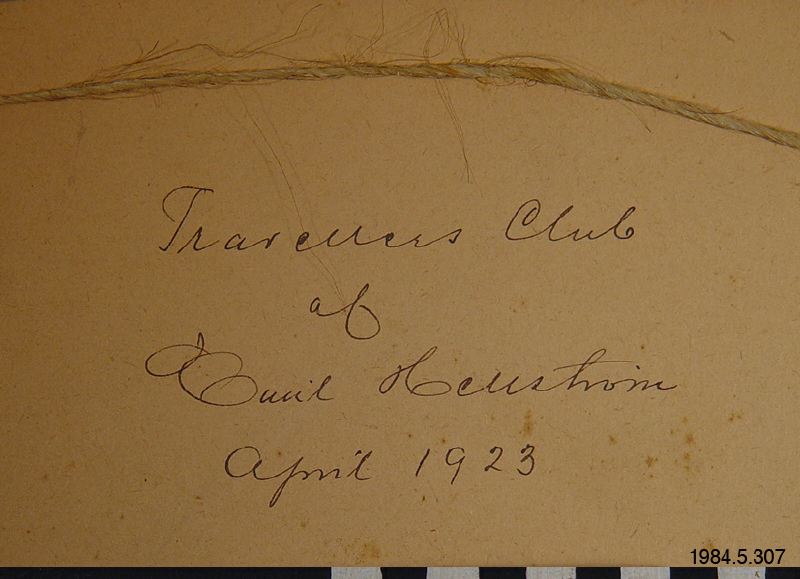 Travellers Club
af
Emil Hellström
April 1923
1984.5.307